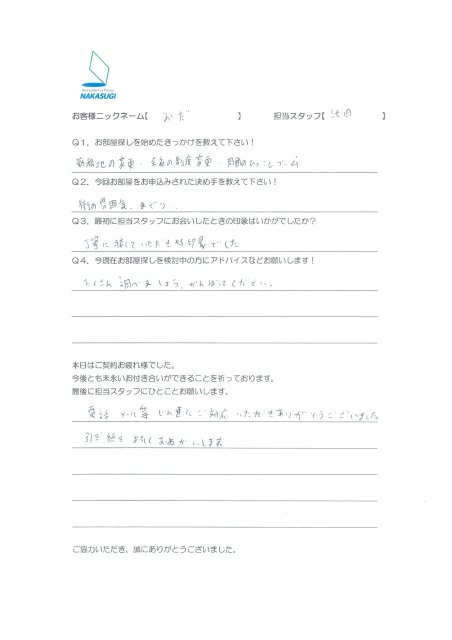 NAKASUGI
お客様ニックネーム【 おだ 】 担当スタッフ【 池田 】
Q1,お部屋探しを始めたきっかけを教えて下さい!
勤務地の変更・会社の制度変更・周囲のひっこしブーム
Q2,今回お部屋をお申込みされた決め手を教えて下さい!
街の雰囲気、まどり
Q3,最初に担当スタッフにお会いしたときの印象はいかがでしたか?
丁寧に接していただき好印象でした
Q4,今現在お部屋探しを検討中の方にアドバイスなどお願いします!
たくさん調べましょう、がんばってください。
本日はご契約お疲れ様でした。
今後とも末永いお付き合いができることを祈っております。
最後に担当スタッフにひとことお願いします。
電話 メール等 じん速にご対応いただきありがとうございました
引き続きよろしくおねがいします
ご協力いただき、誠にありがとうございました。